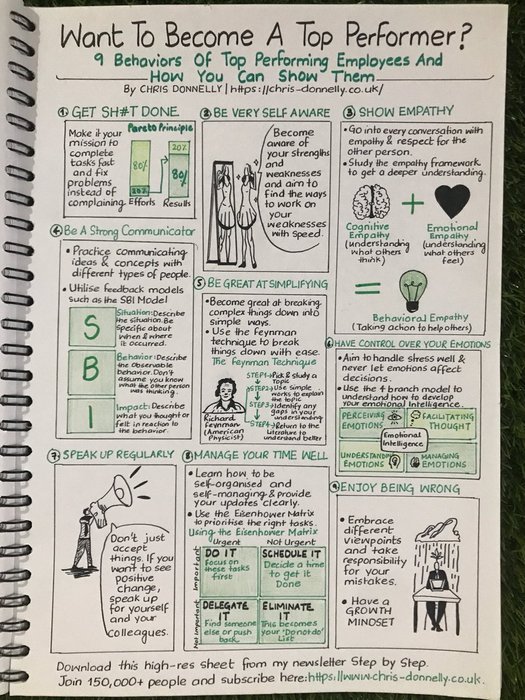 Want To Become A Top Performer?
9 Behaviors Of Top Performing Employees And
How You Can Show Them
By CHRIS DONNELLY | https://chris-donnelly.co.uk/
① GET SH#T DONE
Make it your
mission to
complete
tasks fast
and fix
problems
instead of
complaining.
Pareto Principle
80%
20%
20%
80%
Efforts
Results
② BE VERY SELF AWARE
Become
aware of
your strengths
and
weaknesses
and aim to
find the ways
to work on
your
weaknesses
with speed.
③ SHOW EMPATHY
• Go into every conversation with
empathy & respect for the
other person.
• Study the empathy framework
to get a deeper understanding.
+
Cognitive
Empathy
(understanding
what others
think)
Emotional
Empathy
(understanding
what others
feel)
=
Behavioral Empathy
(Taking action to help others)
④ Be A Strong Communicator
• Practice communicating
ideas & concepts with
different types of people.
• Utilise feedback models
such as the SBI Model
S
Situation: Describe
the situation. Be
Specific about
when & where
it occurred.
B
Behavior: Describe
the observable
behavior. Don't
assume you know
what the other person
was thinking.
I
Impact: Describe
what you thought or
felt in reaction to
the behavior
⑤ BE GREAT AT SIMPLIFYING
• Become great at breaking
complex things down into
simple ways.
• Use the Feynman
technique to break
things down with ease.
The Feynman Technique
STEP1→ Pick & study a
Topic
STEP2→ Use simple
words to explain
the topic
STEP3→ Identify any
gaps in your
understanding
STEP4→ Return to the
Literature to
understand better
Richard
Feynman (American
Physicist)
⑥ HAVE CONTROL OVER YOUR EMOTIONS
• Aim to handle stress well &
never let emotions affect
decisions.
• Use the 4 branch model to
understand how to develop
your emotional Intelligence.
PERCEIVING
EMOTIONS
FACILITATING
THOUGHT
Emotional
Intelligence
UNDERSTANDING
EMOTIONS
MANAGING
EMOTIONS
⑦ SPEAK UP REGULARLY
Don't just
accept
things. If you
want to see
positive
change,
speak up
for yourself
and your
colleagues.
⑧ MANAGE YOUR TIME WELL
• Learn how to be
self-organised and
self-managing & provide
your updates clearly.
• Use the Eisenhower Matrix
to prioritise the right tasks.
Using the Eisenhower Matrix
Urgent
Not Urgent
Important
DO IT
Focus on
these tasks
first
SCHEDULE IT
Decide a time
to get it
Done
Not Important
DELEGATE
IT
Find someone
else or push
back
ELIMINATE
IT
This becomes
your 'Do not do'
List
⑨ ENJOY BEING WRONG
• Embrace
different
viewpoints
and take
responsibility
for your
mistakes.
• Have a
GROWTH
MINDSET
Download this high-res sheet from my newsletter Step by Step.
Join 150,000+ people and subscribe here: https://www.chris-donnelly.co.uk.